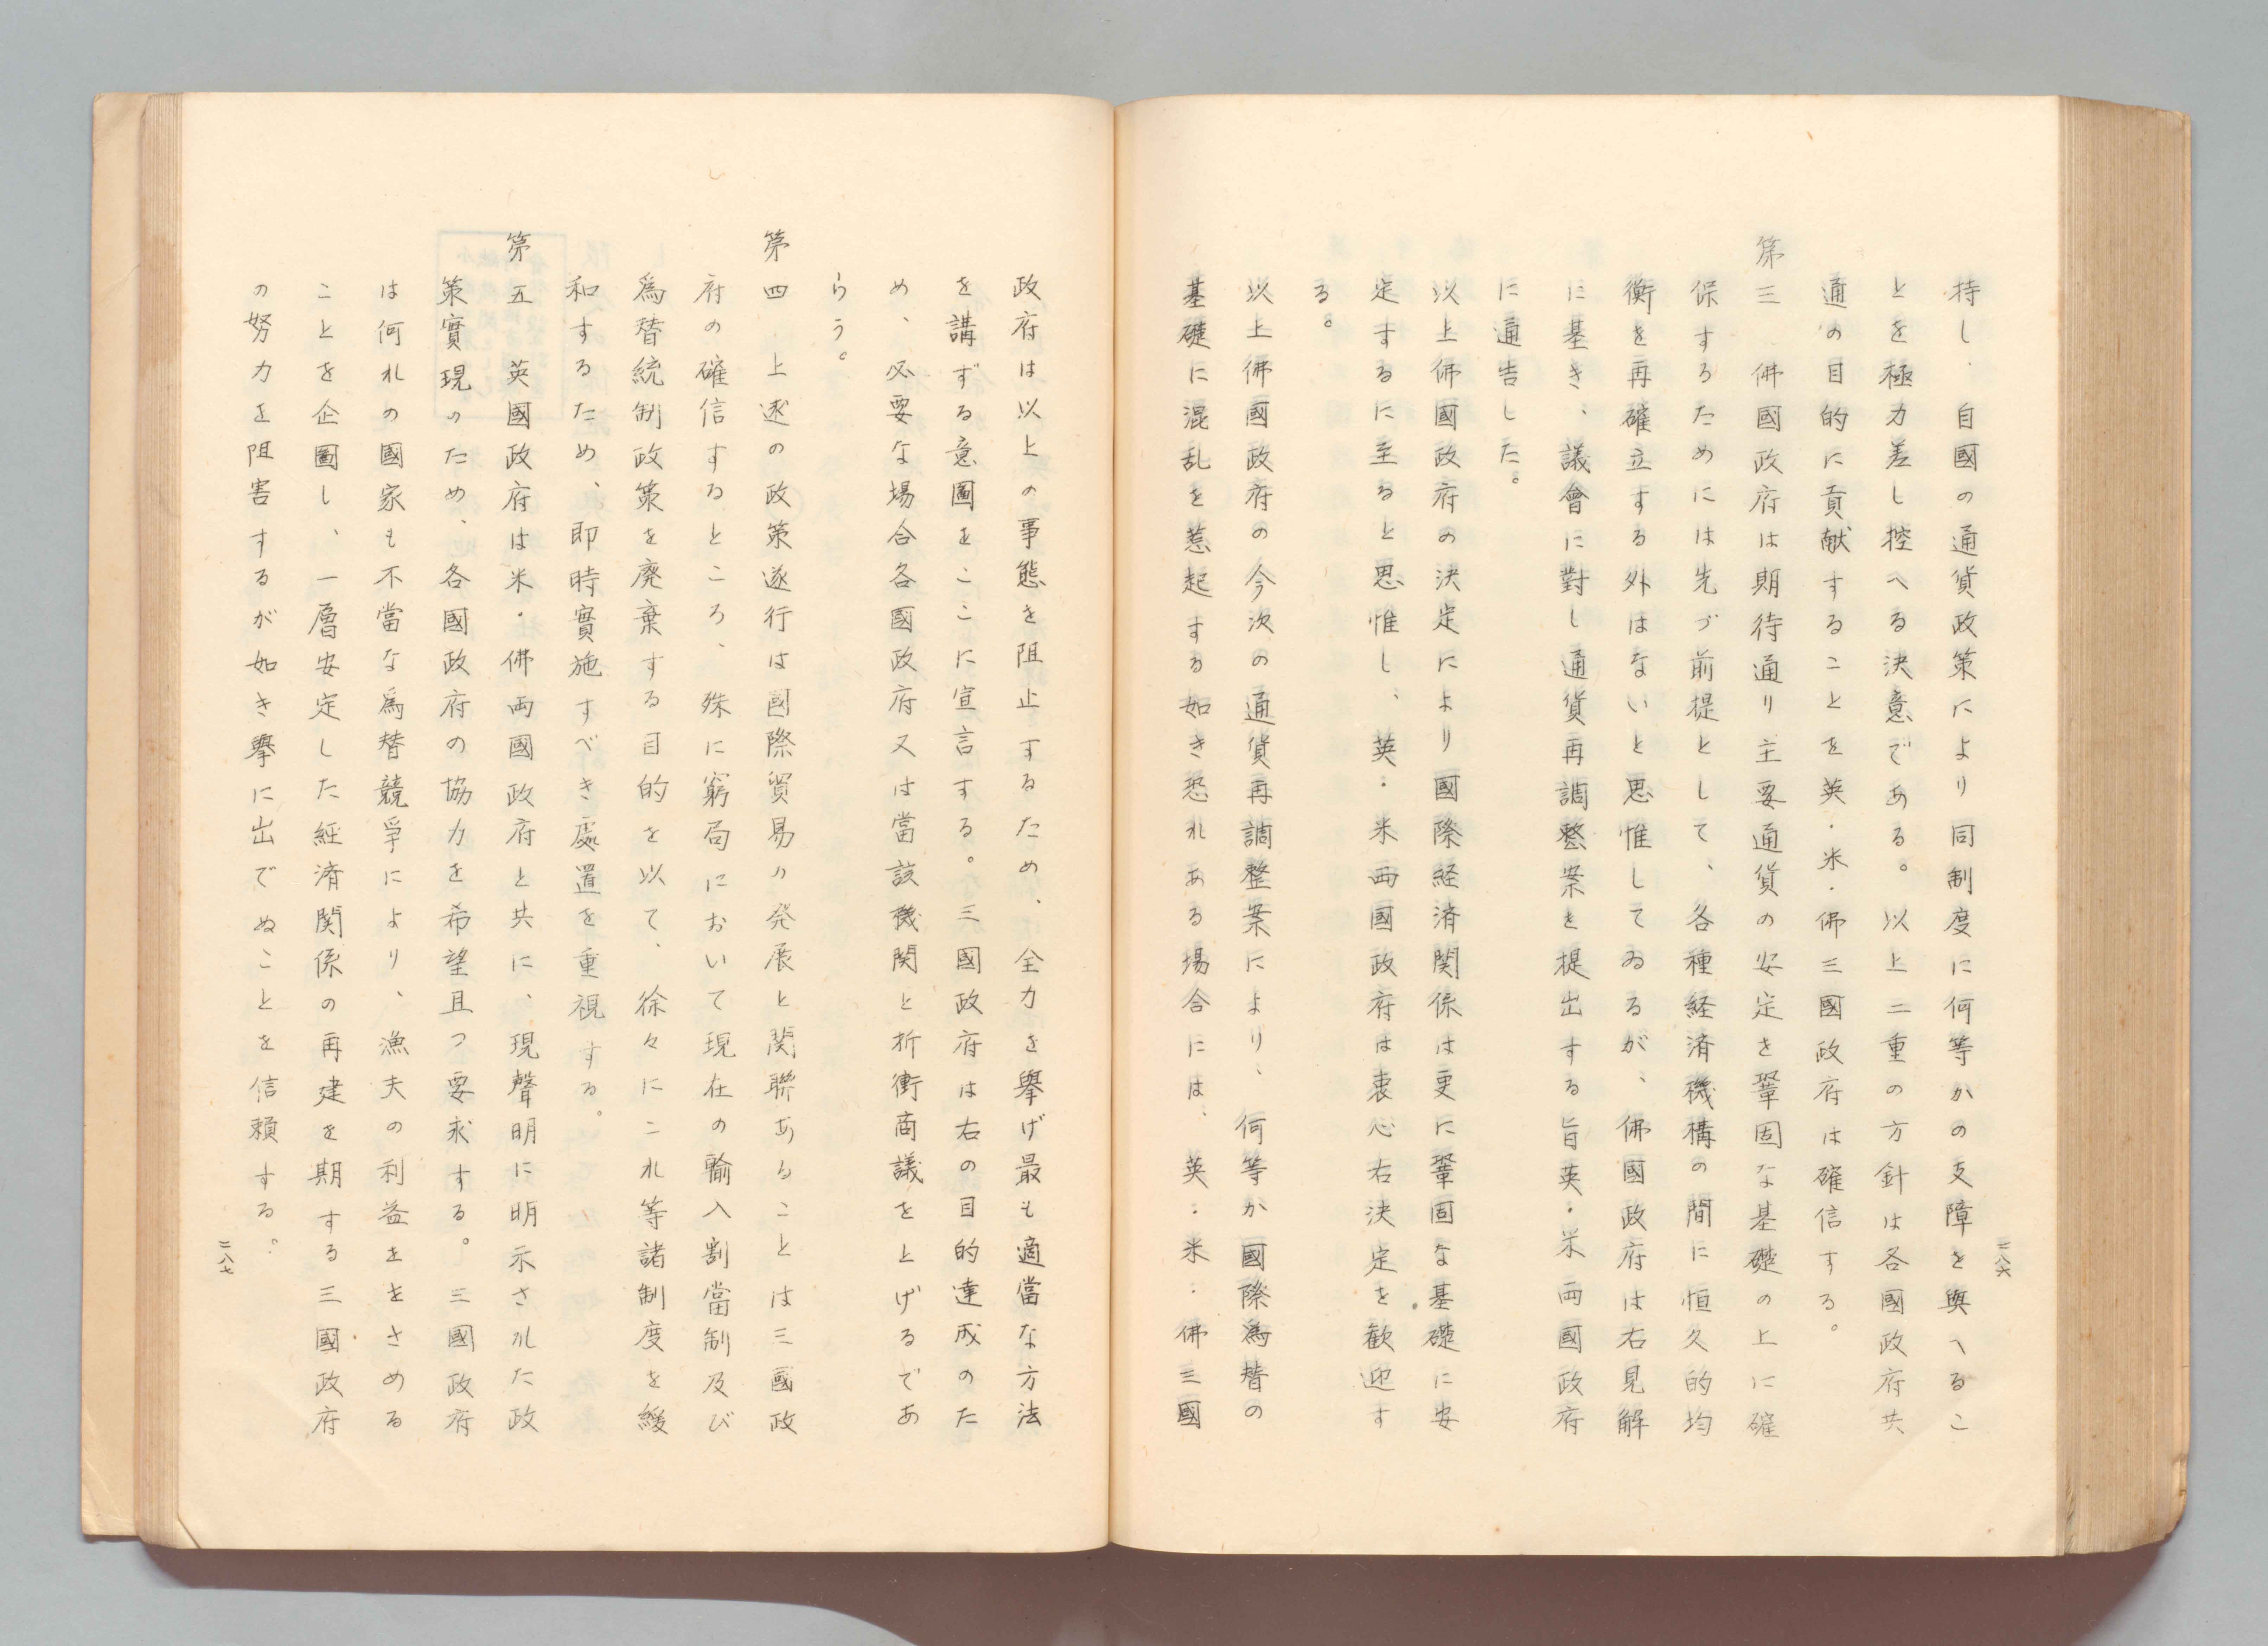 持し、自國の通貨政策により同制度に何等かの支障を與へるこ
とを極力差し控へる決意である。以上二重の方針は各國政府共
通の目的に貢献することを英・米・佛三國政府は確信する。
第三 佛國政府は期待通り主要通貨の安定を鞏固な基礎の上に確
保するためには先づ前提として、各種経済機構の間に恒久的均
衡を再確立する外はないと思惟してゐるが、佛國政府は右見解
に基き、議會に對し通貨再調整案を提出する旨英・米両國政府
に通告した。
以上佛國政府の決定により國際経済関係は更に鞏固な基礎に安
定するに至ると思惟し、英・米両國政府は衷心右決定を歓迎す
る。
以上佛國政府の今次の通貨再調整案により、何等か國際為替の
基礎に混乱を惹起する如き恐れある場合には、英・米・佛三國
二八六
政府は以上の事態を阻止するため、全力を擧げ最も適當な方法
を講ずる意圖をここに宣言する。三國政府は右の目的達成のた
め、必要な場合各國政府又は當該機関と折衝商議を上げるであ
らう。
第四 上述の政策遂行は國際貿易の発展と関聯あることは三國政
府の確信するところ、殊に窮局において現在の輸入割當制及び
爲替統制政策を廃棄する目的を以て、徐々にこれ等諸制度を緩
和するため、即時實施すべき處置を重視する。
第五 英國政府は米・佛両國政府と共に、現聲明に明示された政
策實現のため、各國政府の協力を希望且つ要求する。三國政府
は何れの國家も不當な爲替競爭により、漁夫の利益ををさめる
ことを企圖し、一層安定した経済関係の再建を期する三國政府
の努力を阻害するが如き擧に出でぬことを信頼する。
二八七